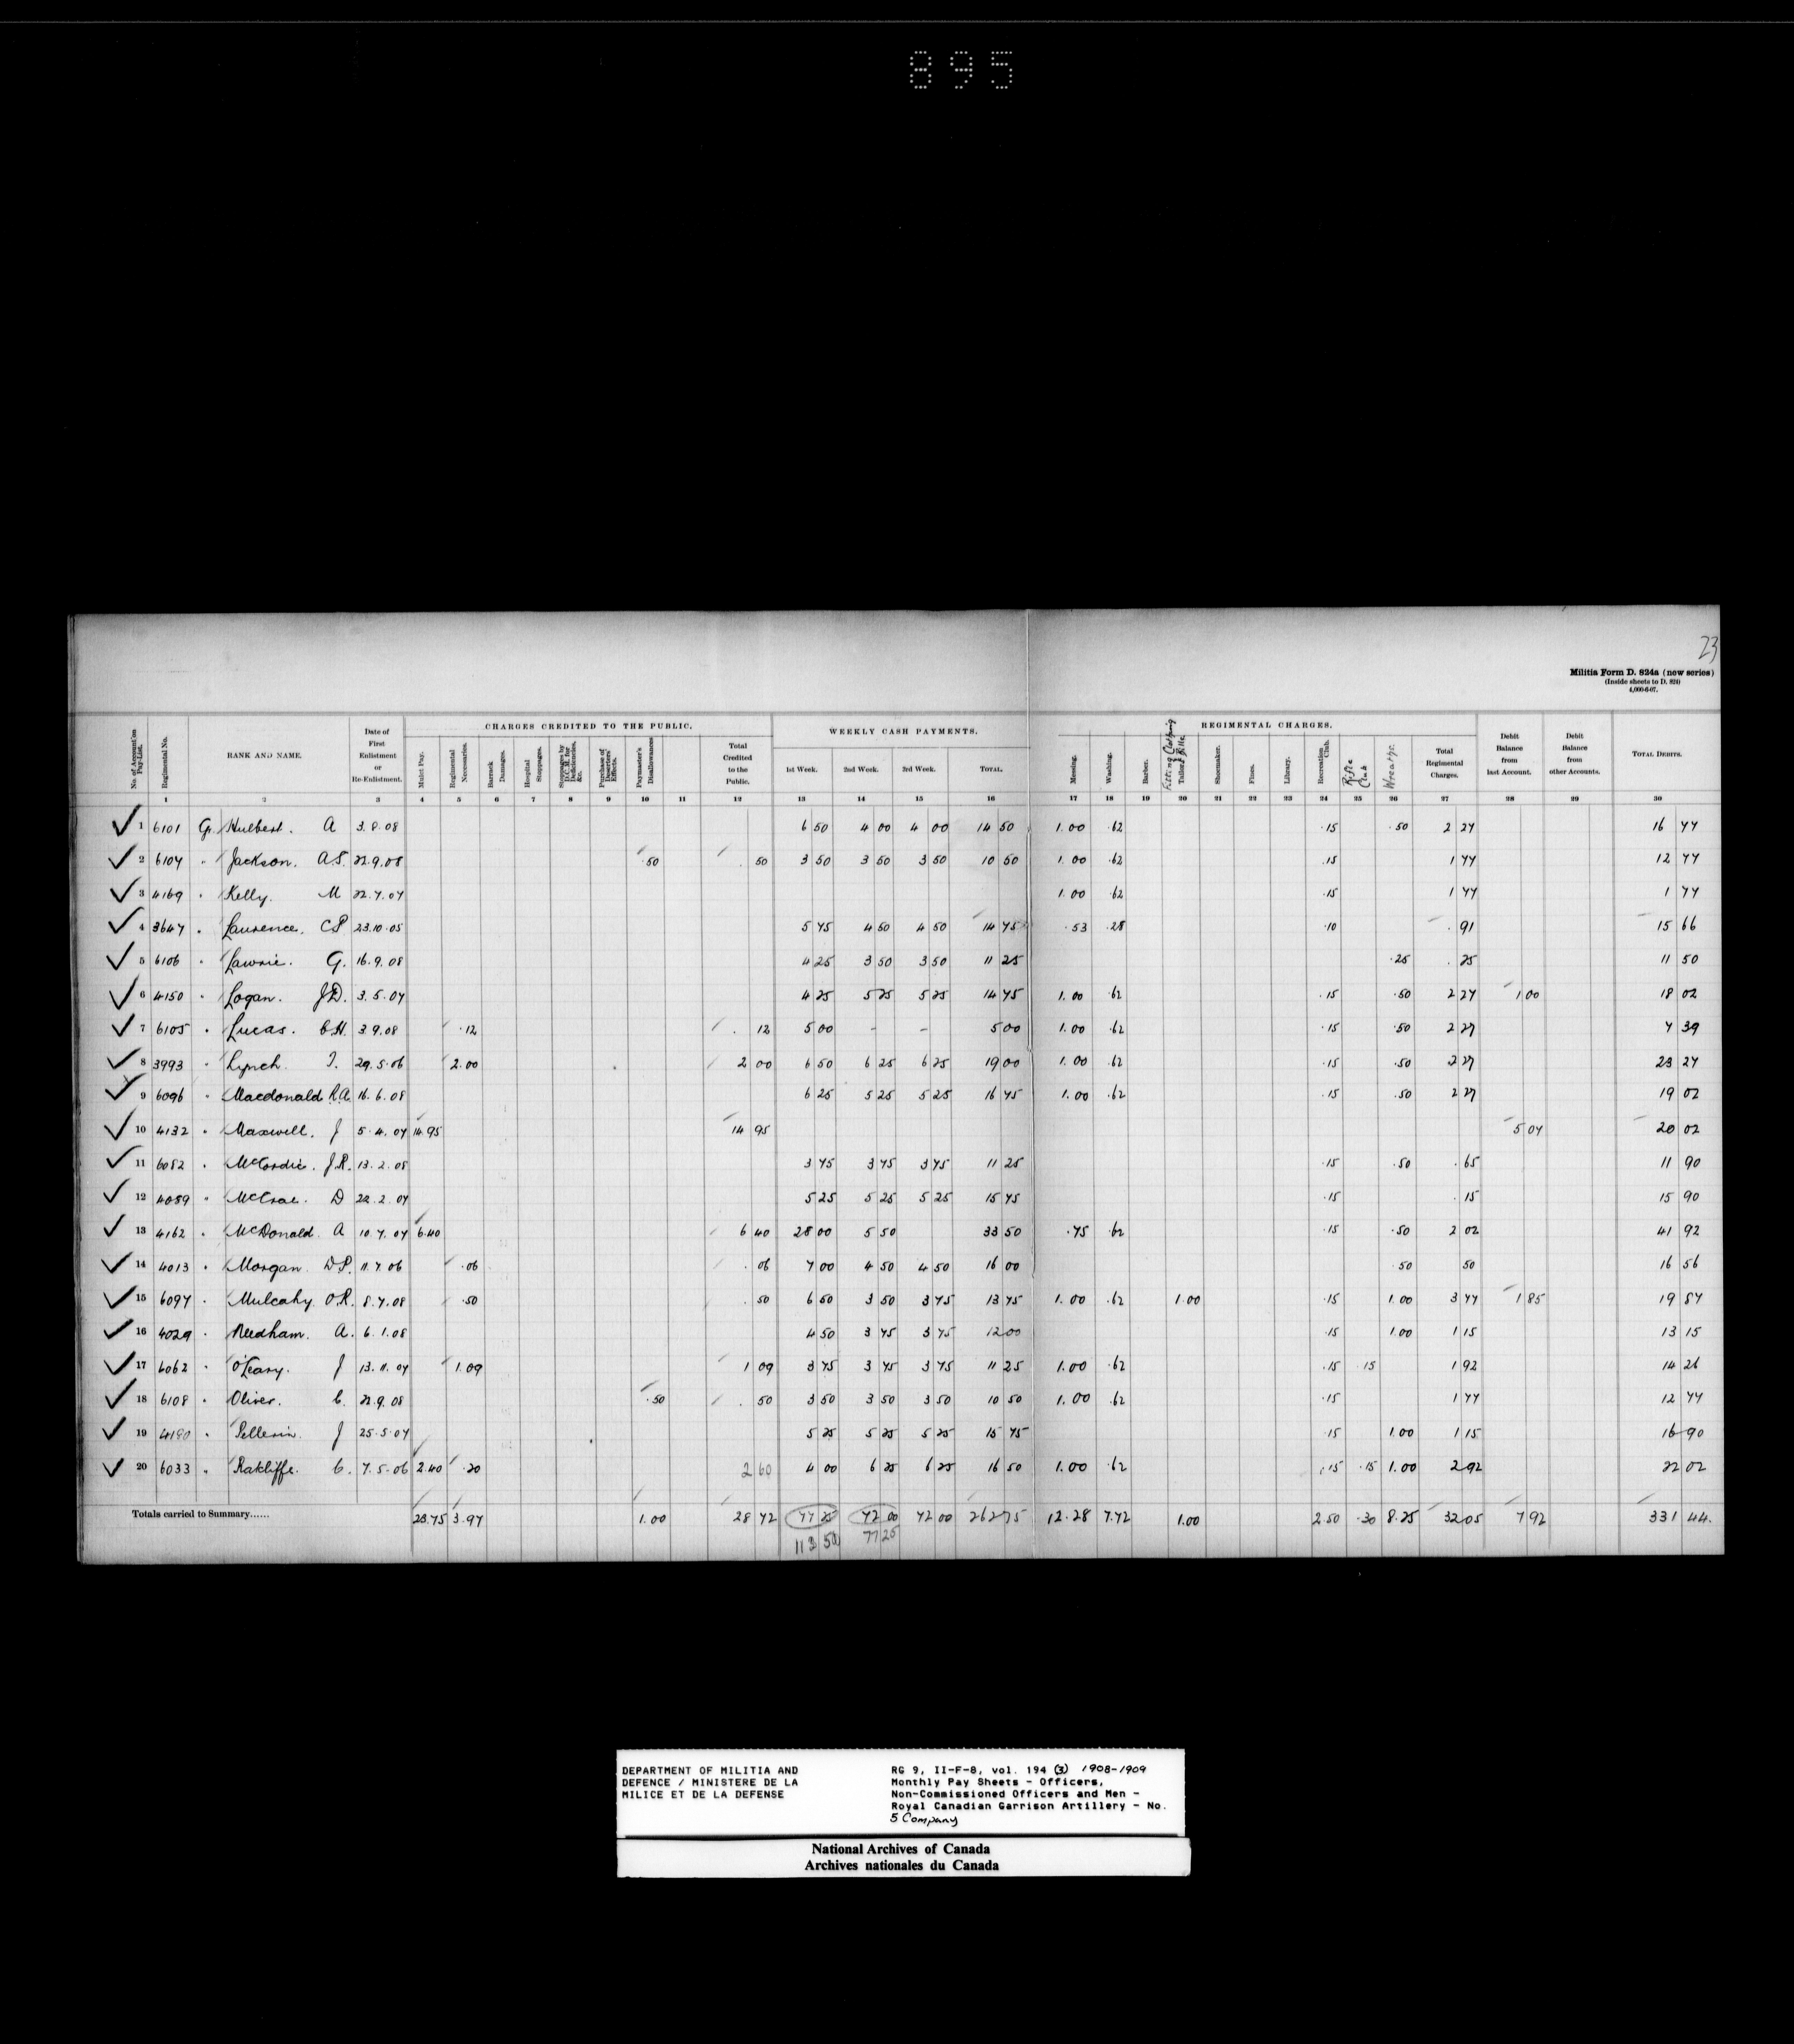 895
23
Militia Form D. 824a (new series)
(Inside sheets to D. 824)
4,000-6-07.
CHARGES CREDITED TO THE PUBLIC. WEEKLY CASH PAYMENTS. REGIMENTAL CHARGES.
No. of Account on Pay-List. Regimental No. RANK AND NAME. Date of First Enlistment or Re-Enlistment. Mulct Pay. Regimental Necessaries. Barrack Damages. Hospital Stoppages. Stoppages by D.C.M. for Deficiencies, &c. Purchase of Deserters' Effects. Paymaster's Disallowances Total Credited to the Public. 1st Week. 2nd Week. 3rd Week. TOTAL. Messing. Washing. Barber. Fitting Clothing Tailor's Bills. Shoemaker. Fines. Library. Recreation Club. Rifle Club Wreath &c. Total Regimental Charges. Debit Balance from last Account. Debit Balance from other Accounts. TOTAL DEBITS.
1 2 3 4 5 6 7 8 9 10 11 12 13 14 15 16 17 18 19 20 21 22 23 24 25 26 27 28 29 30
1 6101 Gr. Hulbert. A 3.8.08 6 50 4 00 4 00 14 50 1.00 .62 .15 .50 2 27 16 77
2 6107 " Jackson. A.S. 22.9.08 .50 . 50 3 50 3 50 3 50 10 50 1.00 .62 .15 1 77 12 77
3 4169 " Kelly. M 22.7.07 1.00 .62 .15 1 77 1 77
4 3647 " Laurence. C P 23.10.05 5 75 4 50 4 50 14 75 .53 .28 .10 . 91 15 66
5 6106 " Lawrie. G. 16.9.08 4 25 3 50 3 50 11 25 .25 . 25 11 50
6 4150 " Logan. J.D. 3.5.07 4 25 5 25 5 25 14 75 1.00 .62 .15 .50 2 27 1 00 18 02
7 6105 " Lucas. C.H. 3.9.08 .12 . 12 5 00 - - 5 00 1.00 .62 .15 .50 2 27 7 39
8 3993 " Lynch. T. 29.5.06 2.00 2 00 6 50 6 25 6 25 19 00 1.00 .62 .15 .50 2 27 23 27
9 6096 " Macdonald R.A. 16.6.08 6 25 5 25 5 25 16 75 1.00 .62 .15 .50 2 27 19 02
10 4132 " Maxwell. J 5.4.07 14.95 14 95 5 07 20 02
11 6082 " McCordic. J.R. 13.2.08 3 75 3 75 3 75 11 25 .15 .50 . 65 11 90
12 4089 " McCrae. D 22.2.07 5 25 5 25 5 25 15 75 .15 . 15 15 90
13 4162 " McDonald. A 10.7.07 6.40 6 40 28 00 5 50 33 50 .75 .62 .15 .50 2 02 41 92
14 4013 " Morgan. D.P. 11.7.06 .06 . 06 7 00 4 50 4 50 16 00 .50 50 16 56
15 6097 " Mulcahy O.R. 8.7.08 .50 . 50 6 50 3 50 3 75 13 75 1.00 .62 1.00 .15 1.00 3 77 1 85 19 87
16 4029 " Needham. A. 6.1.08 4 50 3 75 3 75 12 00 .15 1.00 1 15 13 15
17 6062 " O'Leary. J 13.11.07 1.09 1 09 3 75 3 75 3 75 11 25 1.00 .62 .15 .15 1 92 14 26
18 6108 " Oliver. C. 22.9.08 .50 . 50 3 50 3 50 3 50 10 50 1.00 .62 .15 1 77 12 77
19 4190 " Pellerin. J 25.5.07 5 25 5 25 5 25 15 75 .15 1.00 1 15 16 90
20 6033 " Rakliffe. C. 7.5.06 2.40 .20 2 60 4 00 6 25 6 25 16 50 1.00 .62 .15 .15 1.00 2 92 22 02
Totals carried to Summary...... 23.75 3.97 1.00 28 72 77 25 72 00 72 00 262 75 12.28 7.72 1.00 2.50 .30 8.25 32 05 7 92 331 44.
113 50 77 25
DEPARTMENT OF MILITIA AND
DEFENCE / MINISTERE DE LA
MILICE ET DE LA DEFENSE
RG 9, II-F-8, vol. 194 (3) 1908-1909
Monthly Pay Sheets - Officers,
Non-Commissioned Officers and Men -
Royal Canadian Garrison Artillery - No.
5 Company
National Archives of Canada
Archives nationales du Canada